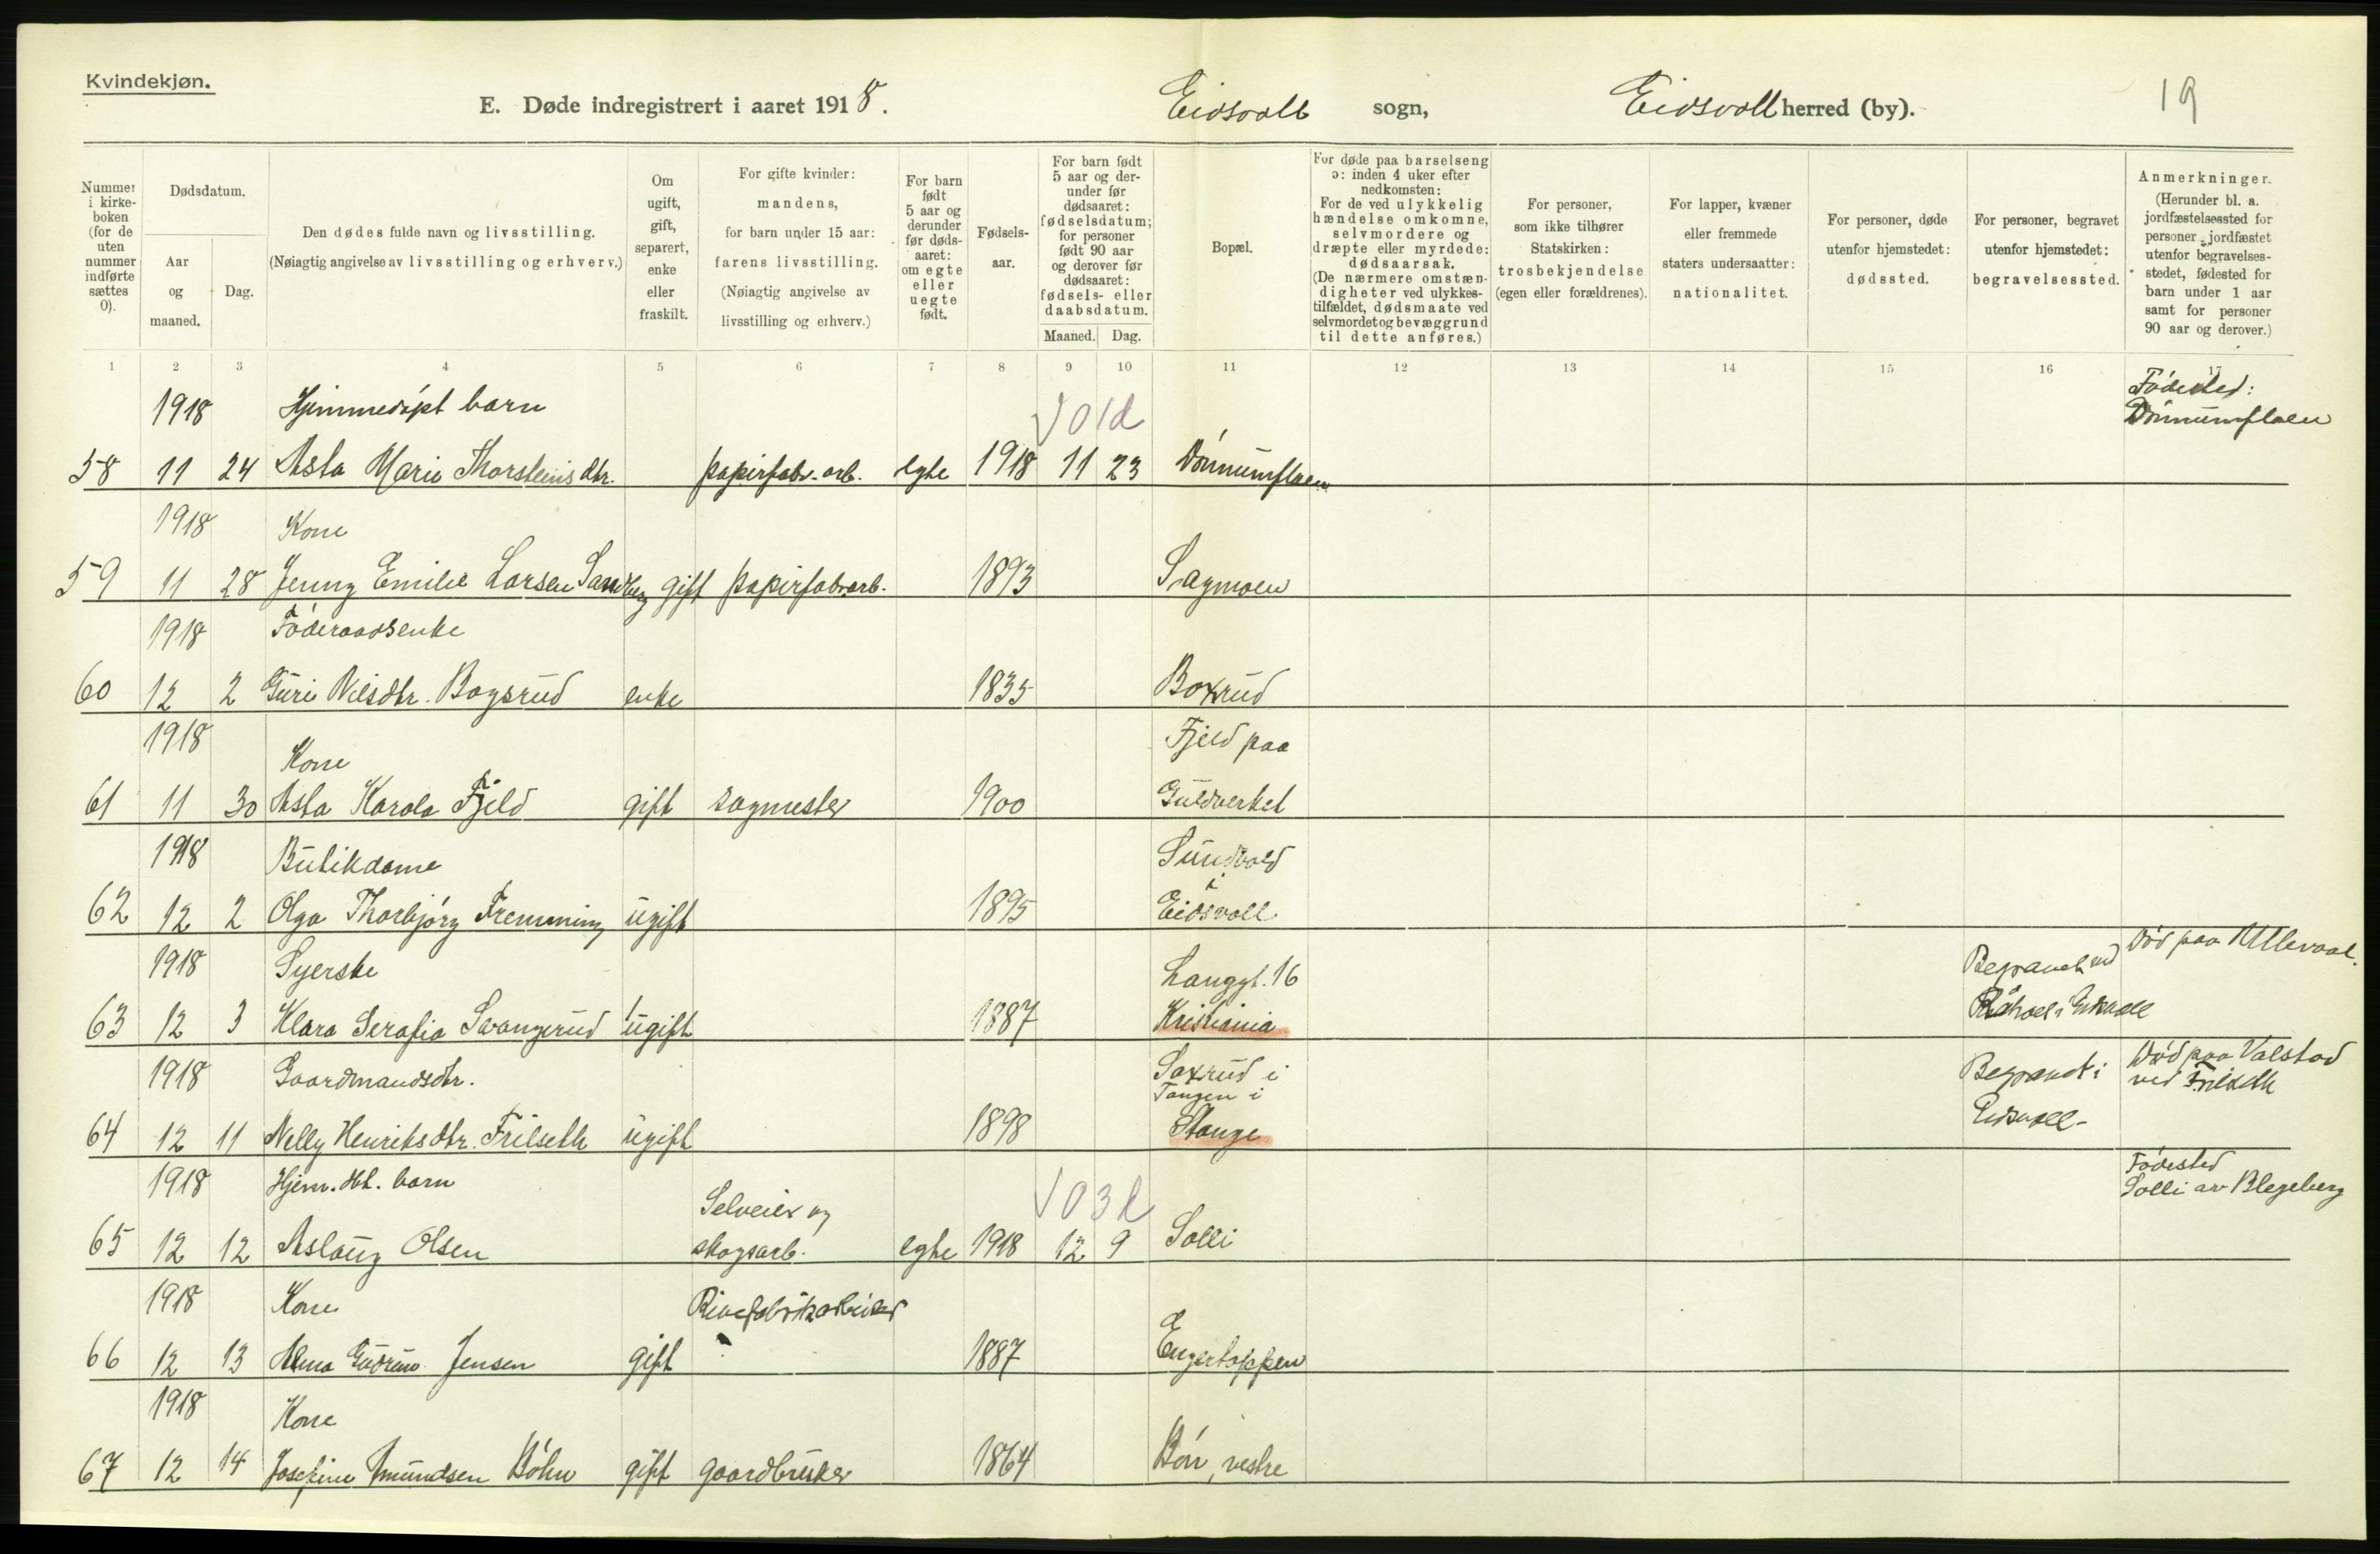 Kvindekjøn.
E. Døde indregistrert i aaret 1918. Eidsvoll sogn, Eidsvoll herred (by). 19
Nummer i kirkeboken (for de uten nummer indførte sættes 0).
Dødsdatum.
Aar og maaned.
Dag.
Den dødes fulde navn og livsstilling.
(Nøiagtig angivelse av livsstilling og erhverv.)
Om ugift, gift, separert, enke eller fraskilt.
For gifte kvinder: mandens, for barn under 15 aar: farens livsstilling. (Nøiagtig angivelse av livsstilling og erhverv.)
For barn født 5 aar og derunder før dødsaaret: om egte eller uegte født.
Fødselsaar.
For barn født 5 aar og derunder før dødsaaret: fødselsdatum; for personer født 90 aar og derover før dødsaaret: fødsels- eller daabsdatum.
Maaned. Dag.
Bopæl.
For døde paa barselseng ɔ: inden 4 uker efter nedkomsten: For de ved ulykkelig hændelse omkomne, selvmordere og dræpte eller myrdede: dødsaarsak. (De nærmere omstændigheter ved ulykkestilfældet, dødsmaate ved selvmordet og bevæggrund til dette anføres.)
For personer, som ikke tilhører Statskirken: trosbekjendelse (egen eller forældrenes).
For lapper, kvæner eller fremmede staters undersaatter: nationalitet.
For personer, døde utenfor hjemstedet: dødssted.
For personer, begravet utenfor hjemstedet: begravelsessted.
Anmerkninger. (Herunder bl. a. jordfæstelsessted for personer jordfæstet utenfor begravelsesstedet, fødested for barn under 1 aar samt for personer 90 aar og derover.)
1 2 3 4 5 6 7 8 9 10 11 12 13 14 15 16 17
1918 Hjemmedøpt barn V 01d Fødested:
Dønnumflaen
58 11 24 Asta Marie Thorsteinsdtr. papirfabr.arb. egte 1918 11 23 Dønnumflaen
1918 Kone
59 11 28 Jenny Emilie Larsen Sandberg gift papirfabr.arb. 1893 Sagmoen
1918 Føderaadsenke
60 12 2 Guri Nilsdtr. Bogsrud enke 1835 Boxrud
1918 Kone Fjeld paa
61 11 30 Asta Karola Fjeld gift sagmester 1900 Guldverket
1918 Butikdame Sundvold
i
62 12 2 Olga Thorbjørg Fremming ugift 1895 Eidsvoll
1918 Syerske Langgt. 16 Begravet ved Død paa Ullevaal.
63 12 3 Klara Serafia Svangerud ugift 1887 Kristiania Råholt i Eidsvoll
1918 Gaardmandsdtr. Saxrud i Begravet i Død paa Valstad
Tangen i ved Frilseth
64 12 11 Nelly Henriksdtr. Frilseth ugift 1898 Stange Eidsvoll
1918 Hjem.dbt. barn V 03d Fødested
Selveier og Solli av Blegeberg
65 12 12 Aslaug Olsen skogsarb. egte 1918 12 9 Solli
1918 Kone Rivefabrikarbeider
66 12 13 Alma Gudrun Jensen gift 1887 Engertoppen
1918 Kone
67 12 14 Josefine Amundsen Bøhn gift gaardbruker 1864 Bøn, vestre